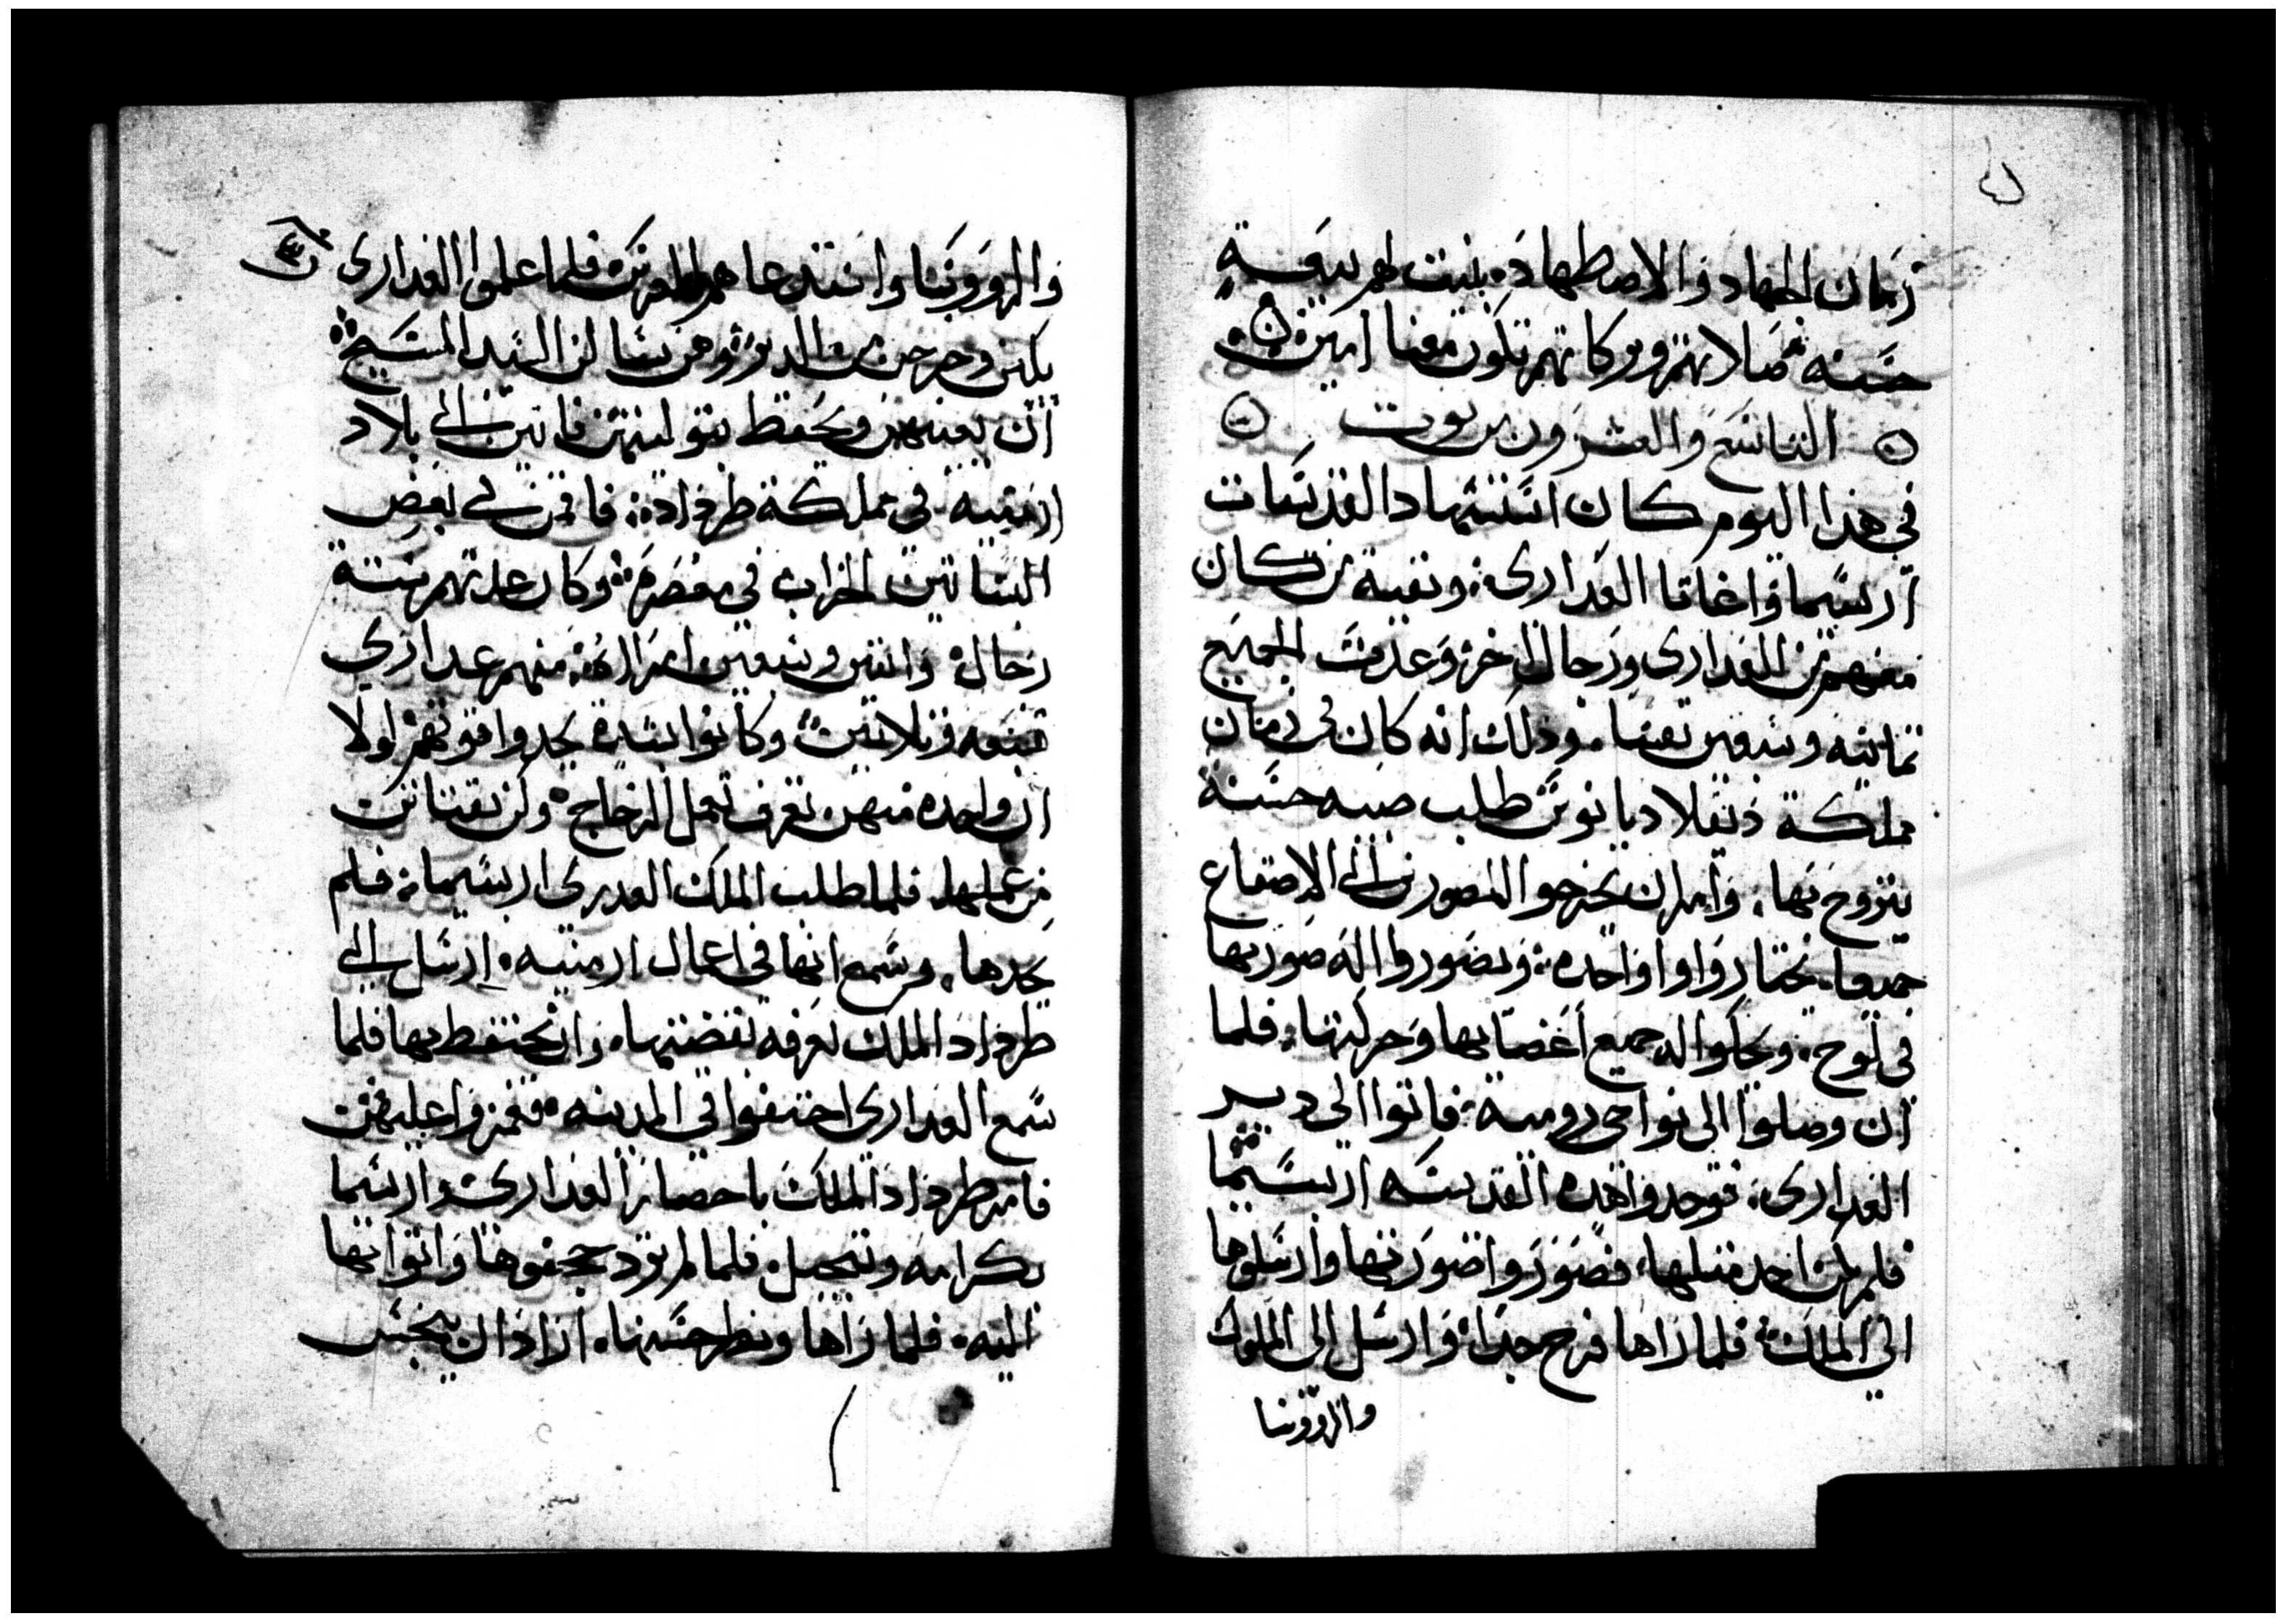 زمان الجهاد والاضطهاد. بنيت لهم بيعة
حسنه صلاتهم وبركاتهم تكون معنا امين
التاسع والعشرون من توت
في هذا اليوم كان استشهاد القديسات
اربسيما واغاتا العدارى. وبقية من كان
معهم من العدارى ورجال اخر وعدت الجميع
تمانيه وسبعين نفسا. وذلك انه كان في زمان
مملكة دقلاديانوس طلب صبيه حسنة
يتزوج بها. وامر ان يخرجوا المصورين الي الاصقاع
جميعا. يختاروا واحده. ويصوروا اله صورتها
في لوح. ويحكوا اله جميع اعضايها وحركتها. فلما
ان وصلوا الى نواحي رومية. فاتوا الى دير
العدارى. فوجدوا هده القديسه اربسيما
فلم يكن احد مثلها. فصوروا صورتها وارسلوها
الي الملك. فلما راها فرح جدا. وارسل الى الملوك
والروونسا
والروونسا واستدعاهم للعرس فلما علموا العدارى
بكين وخرجن من الدير وهن يسالن السيد المسيح
ان يعينهن ويحفظ بتوليتهن فاتين الي بلاد
ارمنيه. في مملكة طرداد. فاقمن في بعض
البساتين الخراب في معصره. وكان عدتهم ستة
رجال. واتنين وسبعين امراه. منهم عدارى
تسعه وتلاتين. وكانوا بشدة يجدوا قوتهم اولا
ان واحده منهن تعرف تعمل الزجاج. وكن يقتاتن
من عملها. فلما طلب الملك العدرى اربسيما. فلم
يجدها. وسمع انها في اعمال ارمنيه. ارسل الي
طرداد الملك يعرفه بقضيتها. وان يحتفظ بها فلما
سمع العدارى اختفوا في المدينه. فغمزوا عليهن
فامر طرداد الملك باحضار العدارى واربسيما
بكرامه وتبجيل. فلما لم تود جحفوها واتوا بها
اليه. فلما راها ونظر حسنها. اراد ان ينجس